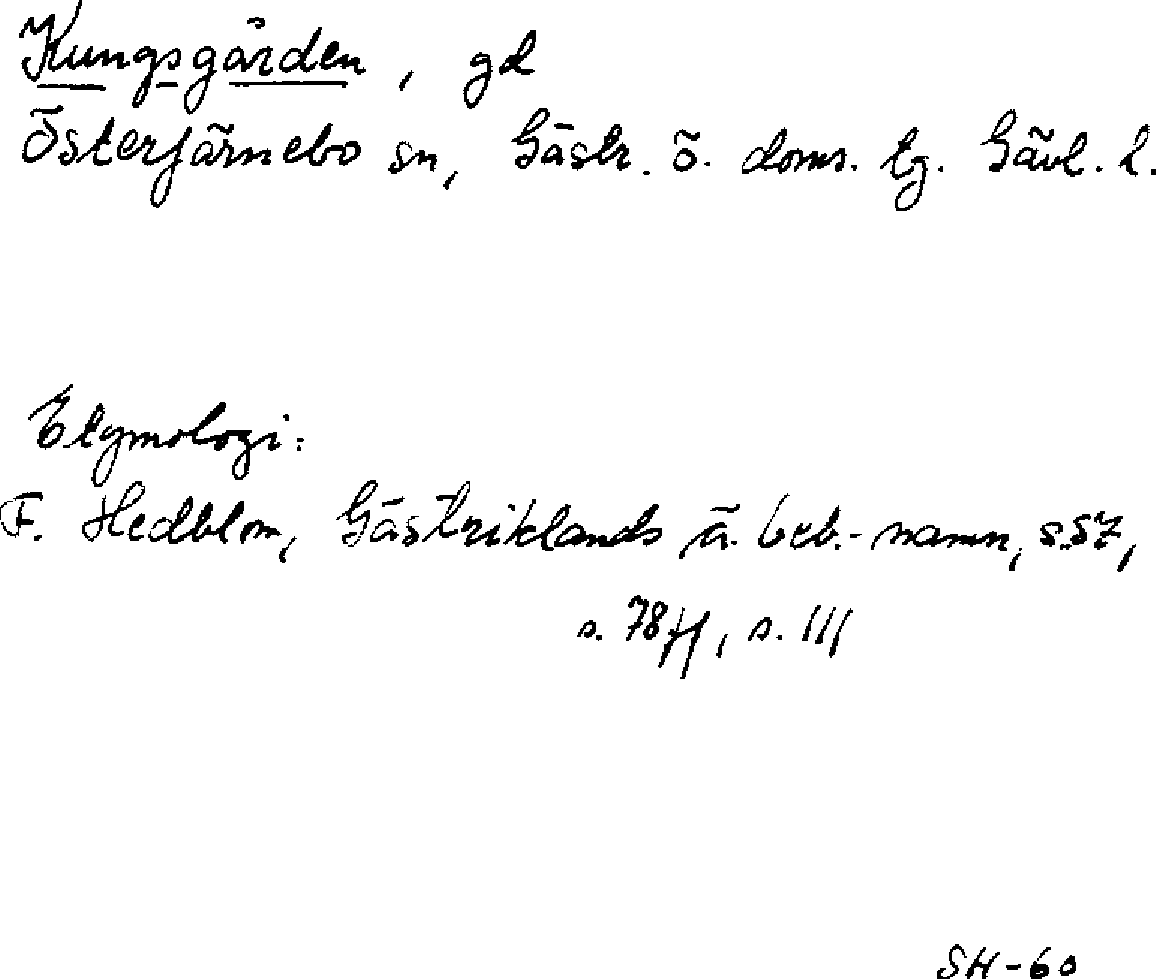 Kungsgården, gd
Österfärnebo sn, Gästr. ö. doms. tg. Gävl. l.
Etymologi:
F. Hedblom, Gästriklands ä. beb.-namn, s.57,
s. 78ff, s. 111
SH-60